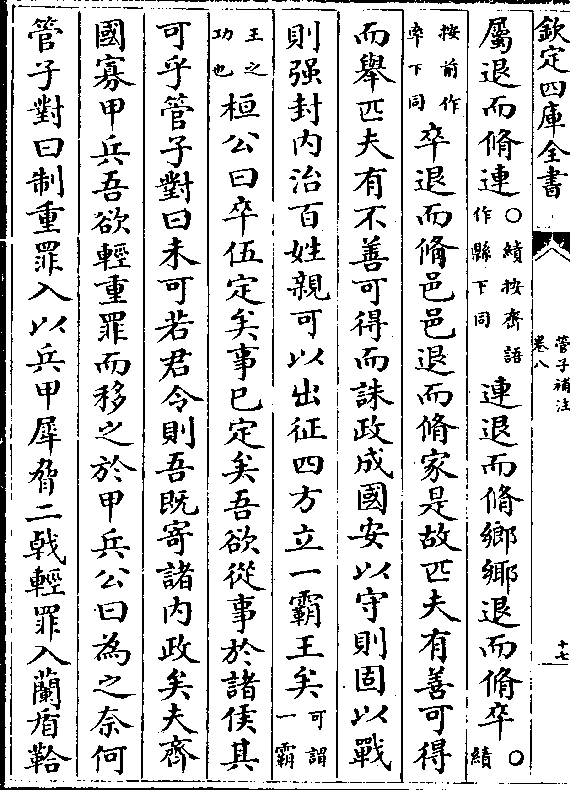 欽定四庫全書
管子補注
卷八
十七
屬退而脩連○績按齊語作縣下同連退而脩鄉鄉退而脩卒○績
按前作率下同卒退而脩邑邑退而脩家是故匹夫有善可得
而舉匹夫有不善可得而誅政成國安以守則固以戰
則强封内治百姓親可以出征四方立一霸王矣可謂一霸
王之功也桓公曰卒伍定矣事已定矣吾欲從事於諸侯其
可乎管子對曰未可若君令則吾既寄諸内政矣夫齊
國寡甲兵吾欲輕重罪而移之於甲兵公曰為之奈何
管子對曰制重罪入以兵甲犀脅二㦸輕罪入蘭盾鞈